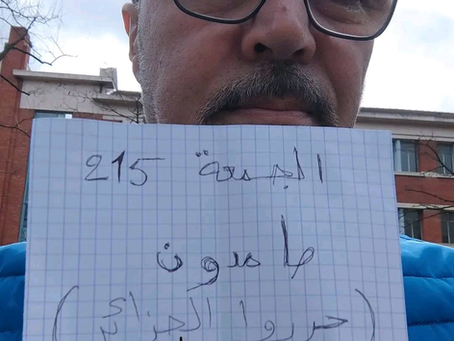 الجمعة 215
صامدون
(حرروا الجزائر)